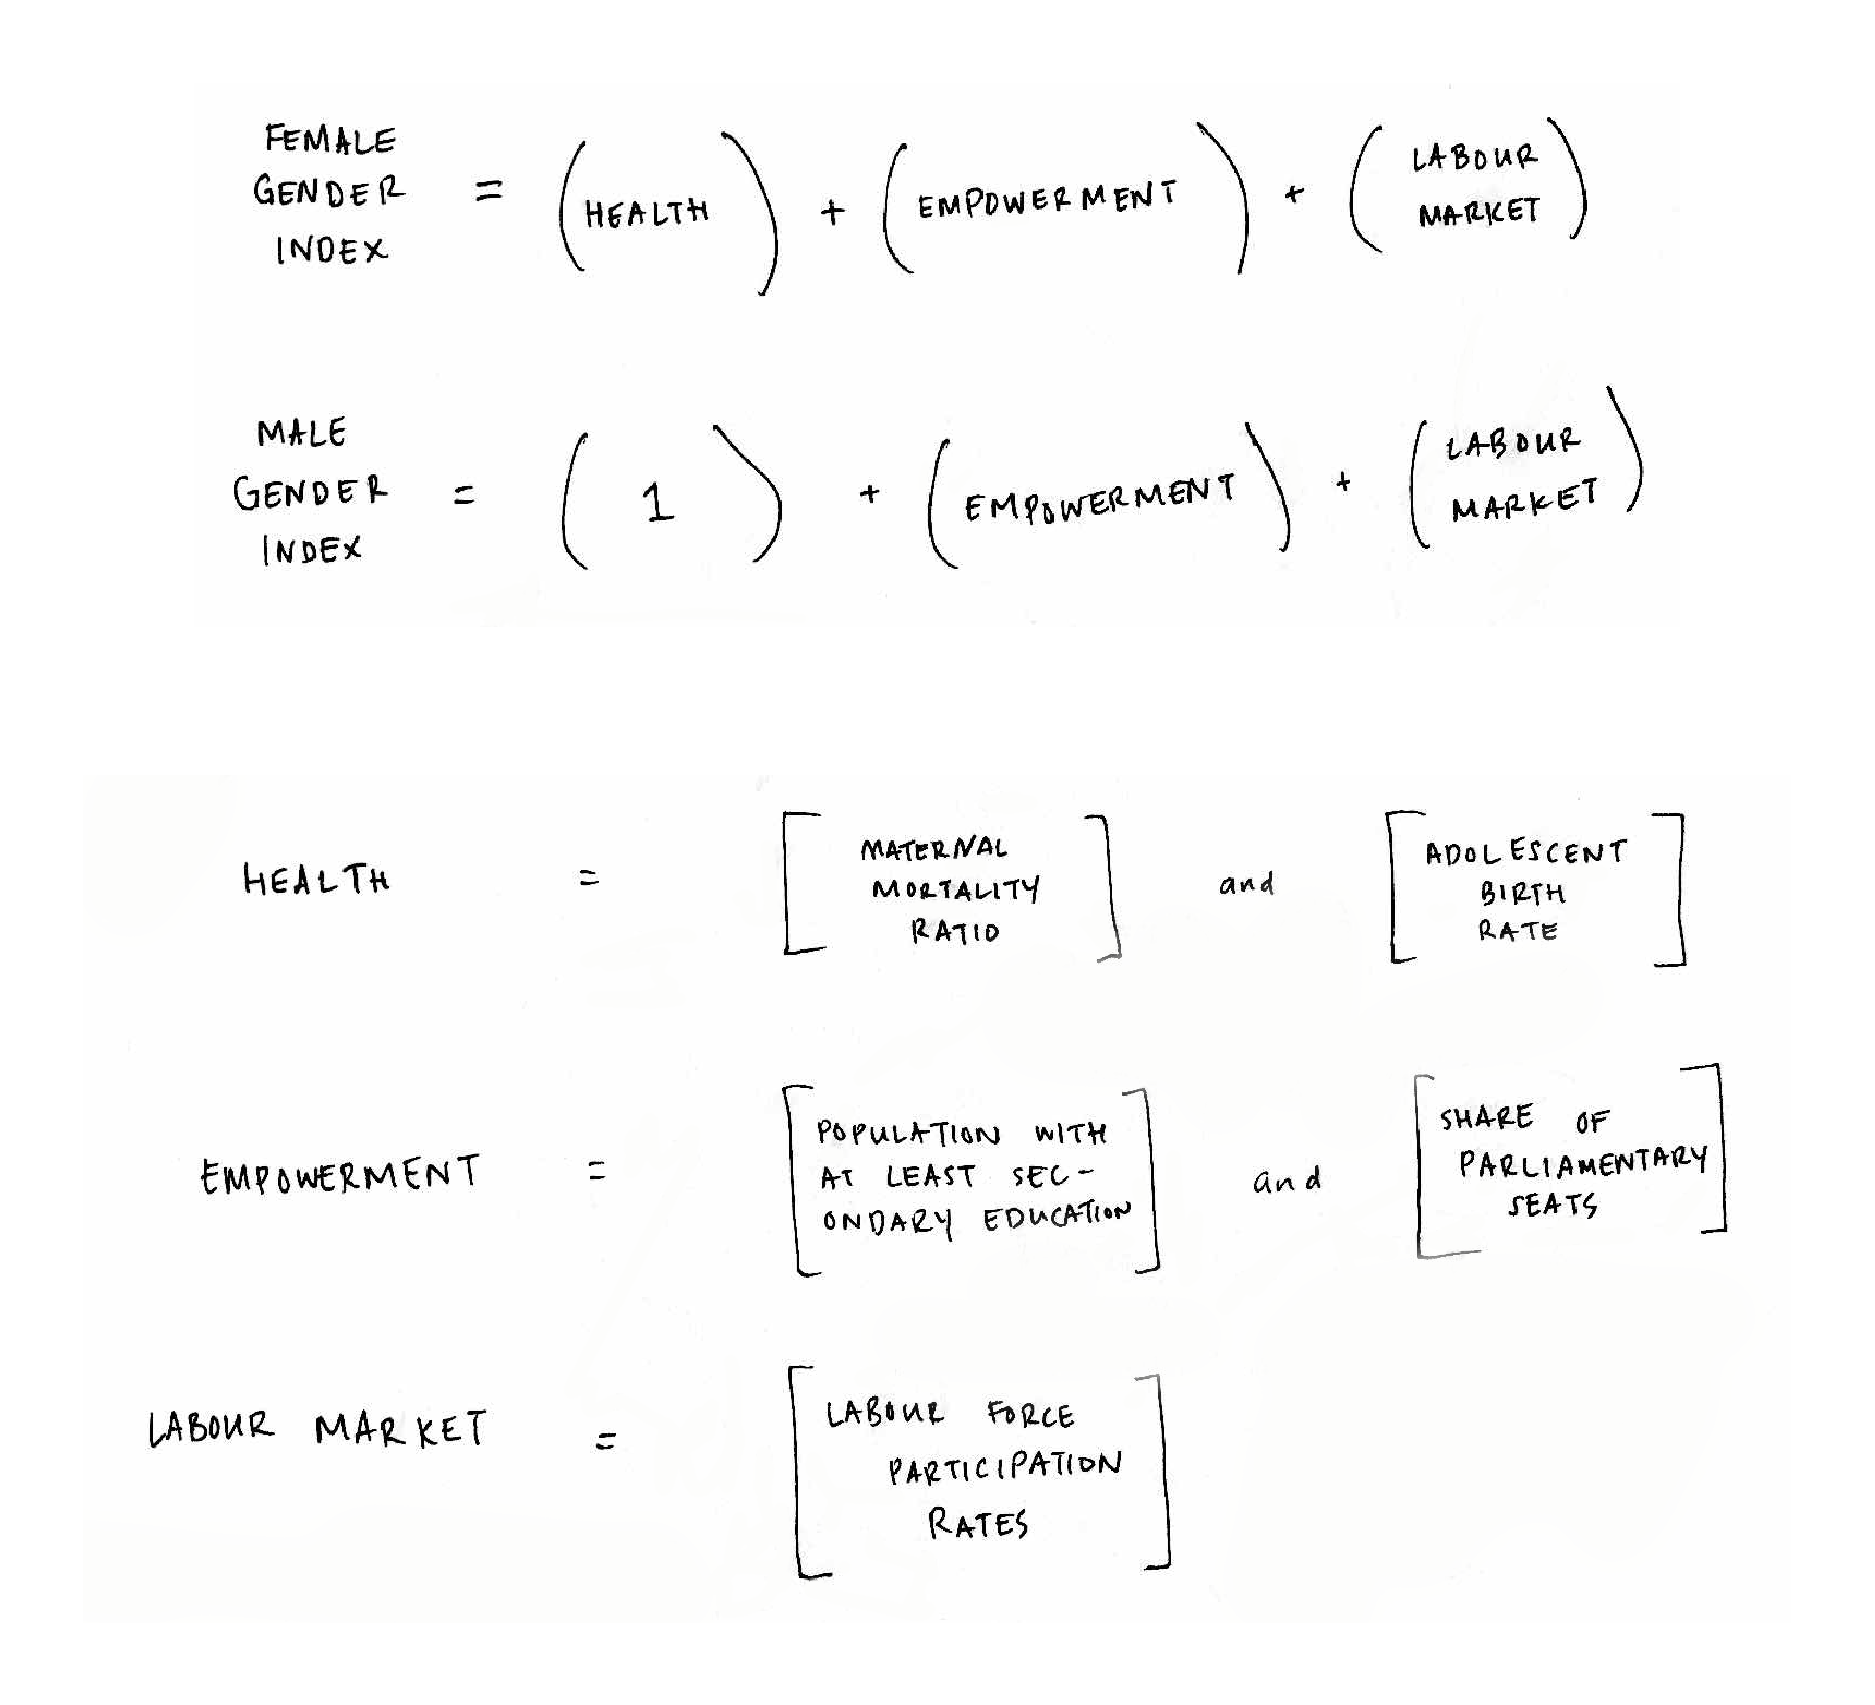 FEMALE
GENDER
INDEX
= ( HEALTH ) + ( EMPOWERMENT ) + (
LABOUR
MARKET
)
MALE
GENDER
INDEX
= ( 1 ) + ( EMPOWERMENT ) + (
LABOUR
MARKET
)
HEALTH = [
MATERNAL
MORTALITY
RATIO
] and [
ADOLESCENT
BIRTH
RATE
]
EMPOWERMENT = [
POPULATION WITH
AT LEAST SEC-
ONDARY EDUCATION
] and [
SHARE OF
PARLIAMENTARY
SEATS
]
LABOUR MARKET = [
LABOUR FORCE
PARTICIPATION
RATES
]